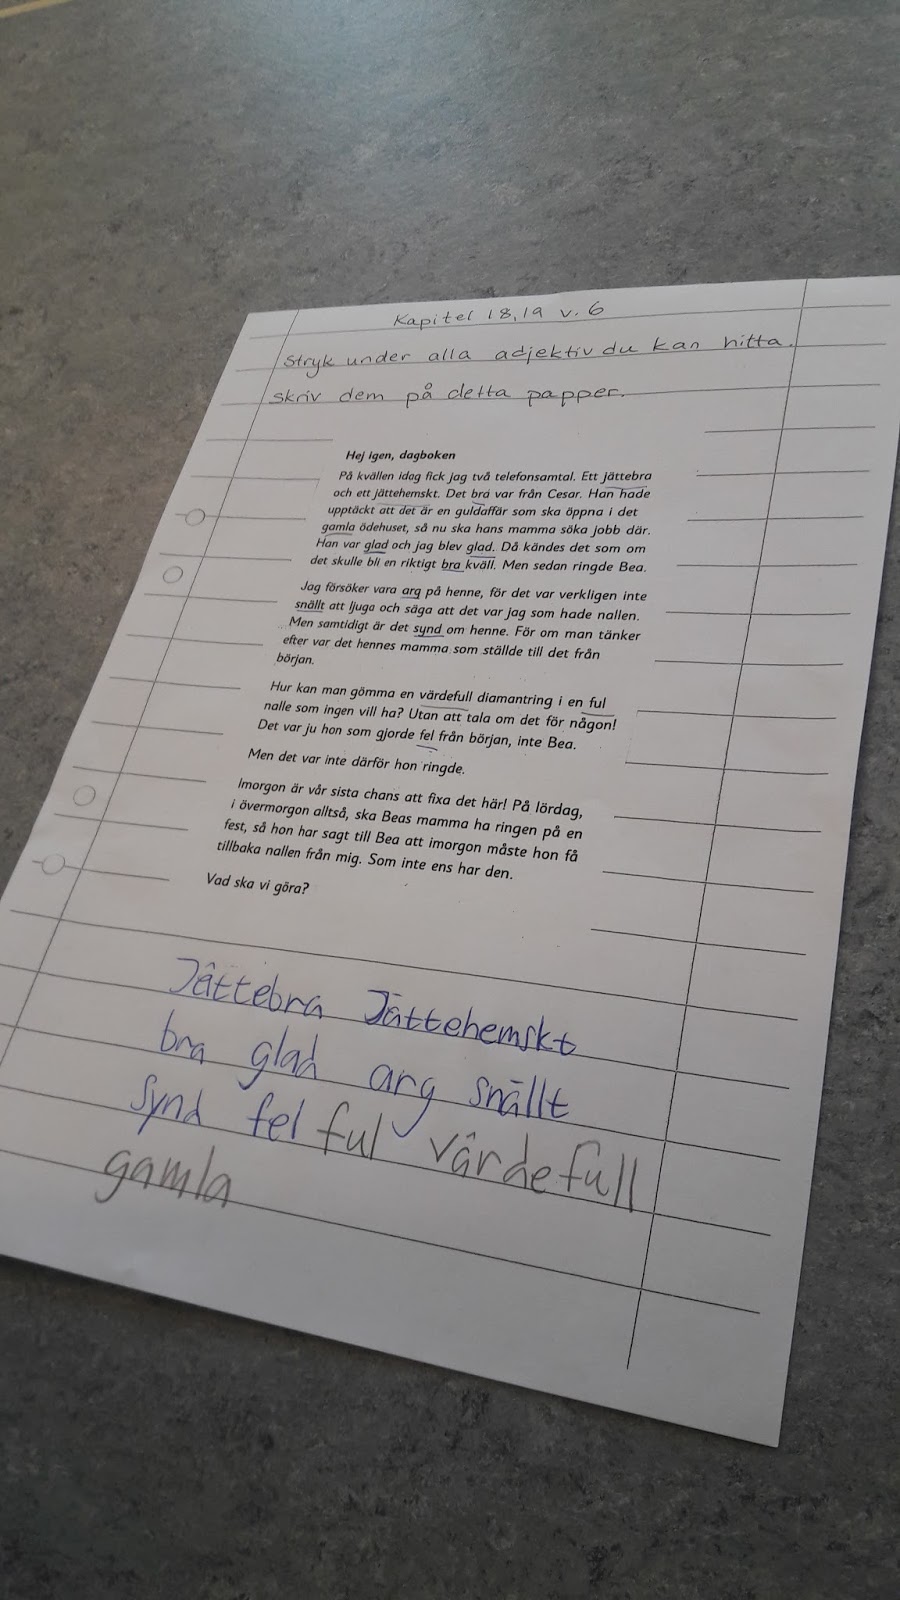 Kapitel 18,19 v. 6
Stryk under alla adjektiv du kan hitta.
skriv dem på detta papper.
Hej igen, dagboken
På kvällen idag fick jag två telefonsamtal. Ett jättebra
och ett jättehemskt. Det bra var från Cesar. Han hade
upptäckt att det är en guldaffär som ska öppna i det
gamla ödehuset, så nu ska hans mamma söka jobb där.
Han var glad och jag blev glad. Då kändes det som om
det skulle bli en riktigt bra kväll. Men sedan ringde Bea.
Jag försöker vara arg på henne, för det var verkligen inte
snällt att ljuga och säga att det var jag som hade nallen.
Men samtidigt är det synd om henne. För om man tänker
efter var det hennes mamma som ställde till det från
början.
Hur kan man gömma en värdefull diamantring i en ful
nalle som ingen vill ha? Utan att tala om det för någon!
Det var ju hon som gjorde fel från början, inte Bea.
Men det var inte därför hon ringde.
Imorgon är vår sista chans att fixa det här! På lördag,
i övermorgon alltså, ska Beas mamma ha ringen på en
fest, så hon har sagt till Bea att imorgon måste hon få
tillbaka nallen från mig. Som inte ens har den.
Vad ska vi göra?
Jättebra Jättehemskt
bra glad arg snällt
synd fel ful värdefull
gamla